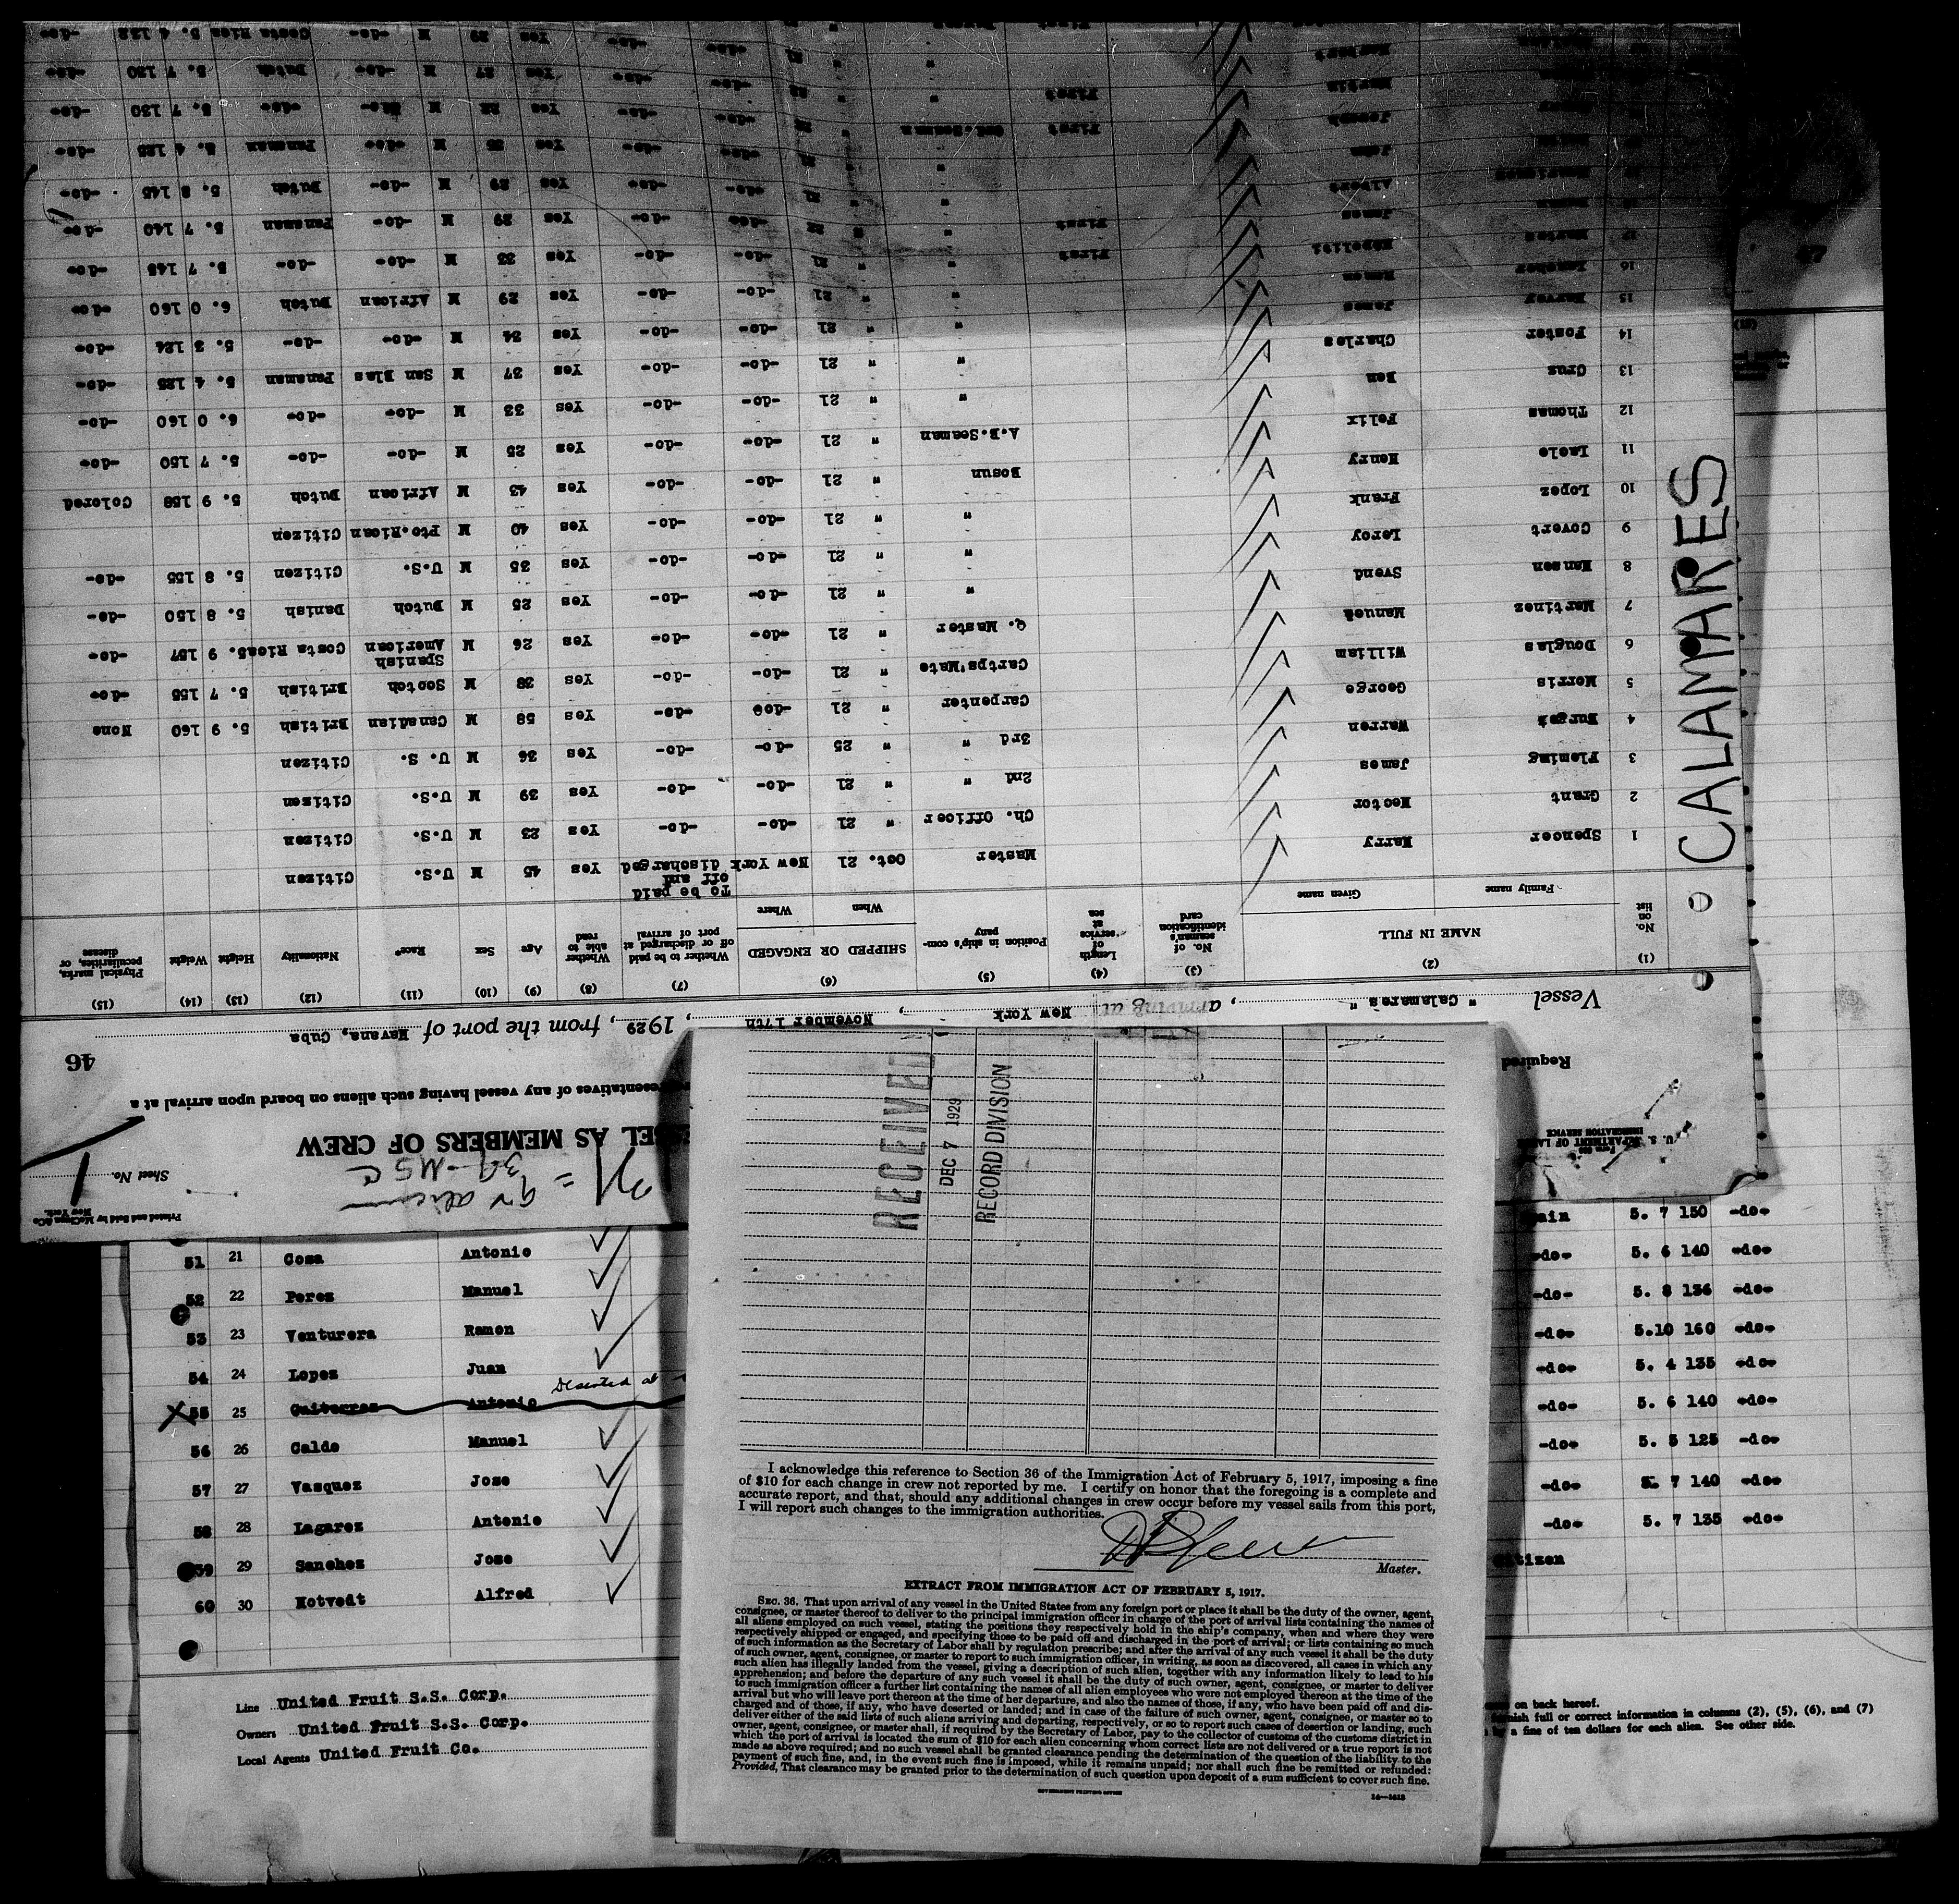 CALAMARES
Printed and Sold by McClugs &Co
New York.
Sheet No. 1
AS MEMBERS OF CREW
representatives of any vessel having such aliens on board upon arrival at a
46
Required
U. S. DEPARTMENT OF LABOR
IMMIGRATION SERVICE
Vessel " Calamares ", arriving at New York, November 17th, 1929, from the port of Havana, Cuba
(1) (2) (3) (4) (5) (6) (7) (8) (9) (10) (11) (12) (13) (14) (15)
No. on list NAME IN FULL Family name Given name No. of seaman's identification card Length of service at sea Position in ship's company SHIPPED OR ENGAGED When Where Whether to be paid off or discharged at port of arrival Whether able to read Age Sex Race* Nationality Height Weight Physical marks, peculiarities, or disease
1 Spencer Harry Master Oct. 21 New York To be paid off and discharged Yes 45 M U.S. Citizen
2 Grant Hector Ch. Officer " 21 -do- -do- Yes 23 M U.S. Citizen
3 Fleming James 2nd " " 21 -do- -do- Yes 39 M U.S. Citizen
4 Burges Warren 3rd " " 25 -do- -do- Yes 36 M U. S. Citizen
5 Morris George Carpenter " 21 -do- -do- Yes 58 M Canadian British 5. 9 160 None
6 Douglas William Cartps'Mate " 21 -do- -do- Yes 38 M Scotch British 5. 7 155 -do-
7 Martinez Manuel Q. Master " 21 -do- -do- Yes 26 M Spanish American Costa Rica 5. 9 157 -do-
8 Hansen Svend " " 21 -do- -do- Yes 25 M Dutch Danish 5. 8 150 -do-
9 Covert Leroy " " 21 -do- -do- Yes 35 M U.S. Citizen 5. 8 155 -do-
10 Lopez Frank " " 21 -do- -do- Yes 40 M Pto.Rican Citizen
11 Lacle Henry Bosun " 21 -do- -do- Yes 43 M African Dutch 5. 9 158 Colored
12 Thomas Felix A.B.Seaman " 21 -do- -do- Yes 25 M -do- -do- 5. 7 150 -do-
13 Cruz Ben " " 21 -do- -do- Yes 33 M -do- -do- 6. 0 160 -do-
14 Foster Charles " " 21 -do- -do- Yes 37 M San Blas Panaman 5. 4 125 -do-
15 Harvey James " " 21 -do- -do- Yes 34 M -do- -do- 5. 3 124 -do-
16 Ramon " " 21 -do- -do- Yes 29 M African Dutch 6. 0 160 -do-
17 First " " 21 -do- -do- Yes 33 M -do- -do- 5. 7 145 -do-
James First " 22 -do- -do- Yes 29 M -do- Panaman 5. 7 140 -do-
Albert " 21 -do- -do- Yes 29 M -do- Dutch 5. 8 145 -do-
John " 21 -do- -do- Yes 35 M -do- Panaman 5. 4 125 -do-
Joseph First Ord.Seaman 22 -do- -do- Yes 22 M -do- -do- 5. 7 130 -do-
Martin First " 22 -do- -do- Yes 27 M -do- Dutch 5. 7 130 -do-
Herbert " 21 -do- -do- Yes 29 M -do- Costa Rica 5. 4 122 -do-
RECEIVED
DEC 7 1929
RECORD DIVISION
ain 5. 7 150 -do-
51 21 Coma Antonio -do- 5. 6 140 -do-
52 22 Perez Manuel -do- 5. 8 136 -do-
53 23 Venturera Ramon -do- 5.10 160 -do-
54 24 Lopez Juan -do- 5. 4 135 -do-
Deserted at
55 25 Guiterrez Antonio -do- 5. 6 140 -do-
56 26 Caldo Manuel -do- 5. 5 125 -do-
57 27 Vasquez Jose -do- 5. 7 140 -do-
58 28 Lagarez Antonio -do- 5. 7 135 -do-
59 29 Sanchez Jose Citizen
60 30 Hotvedt Alfred
Line United Fruit S.S. Corp.
Owners United Fruit S.S. Corp.
Local Agents United Fruit Co.
on back hereof.
furnish full or correct information in columns (2), (5), (6), and (7)
by a fine of ten dollars for each alien. See other side.
I acknowledge this reference to Section 36 of the Immigration Act of February 5, 1917, imposing a fine
of $10 for each change in crew not reported by me. I certify on honor that the foregoing is a complete and
accurate report, and that, should any additional changes in crew occur before my vessel sails from this port,
I will report such changes to the immigration authorities.
Master.
EXTRACT FROM IMMIGRATION ACT OF FEBRUARY 5, 1917.
SEC. 36. That upon arrival of any vessel in the United States from any foreign port or place it shall be the duty of the owner, agent,
consignee, or master thereof to deliver to the principal immigration officer in charge of the port of arrival lists containing the names of
all aliens employed on such vessel, stating the positions they respectively hold in the ship's company, when and where they were
respectively shipped or engaged, and specifying those to be paid off and discharged in the port of arrival; or lists containing so much
of such information as the Secretary of Labor shall by regulation prescribe; and after the arrival of any such vessel it shall be the duty
of such owner, agent, consignee, or master to report to such immigration officer, in writing, as soon as discovered, all cases in which any
such alien has illegally landed from the vessel, giving a description of such alien, together with any information likely to lead to his
apprehension; and before the departure of any such vessel it shall be the duty of such owner, agent, consignee, or master to deliver
to such immigration officer a further list containing the names of all alien employees who were not employed thereon at the time of the
arrival but who will leave port thereon at the time of her departure, and also the names of those, if any, who have been paid off and dis-
charged and of those, if any, who have deserted or landed; and in case of the failure of such owner, agent, consignee, or master so to
deliver either of the said lists of such aliens arriving and departing, respectively, or so to report such cases of desertion or landing, such
owner, agent, consignee, or master shall, if required by the Secretary of Labor, pay to the collector of customs of the customs district in
which the port of arrival is located the sum of $10 for each alien concerning whom correct lists are not delivered or a true report is not
made as above required; and no such vessel shall be granted clearance pending the determination of the question of the liability to the
payment of such fine, and, in the event such fine is imposed, while it remains unpaid; nor shall such fine be remitted or refunded:
Provided, That clearance may be granted prior to the determination of such question upon deposit of a sum sufficient to cover such fine.
GOVERNMENT PRINTING OFFICE
14—1613